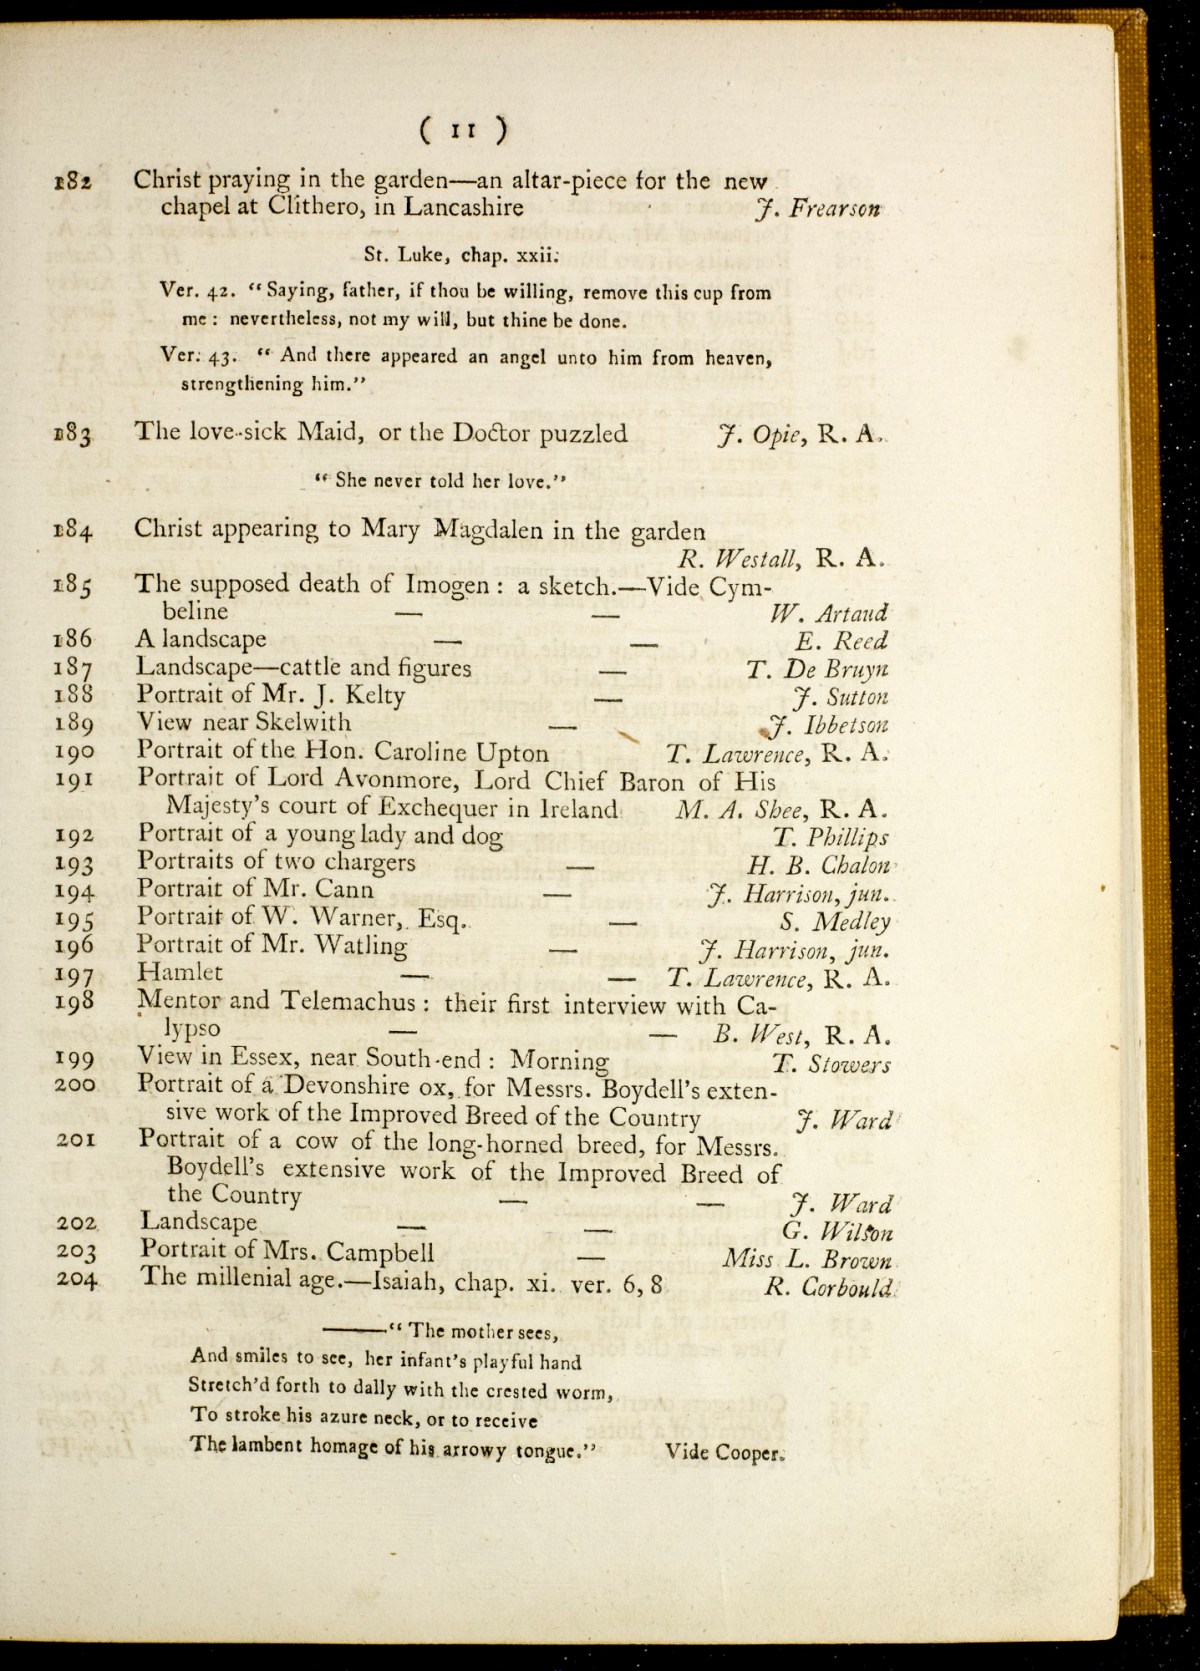 ( 11 )
182 Christ praying in the garden—an altar-piece for the new
chapel at Clithero, in Lancashire J. Frearson
St. Luke, chap. xxii.
Ver. 42. “Saying, father, if thou be willing, remove this cup from
me: nevertheless, not my will, but thine be done.
Ver. 43. “And there appeared an angel unto him from heaven,
strengthening him.”
183 The love-sick Maid, or the Doctor puzzled J. Opie, R. A.
“She never told her love.”
184 Christ appearing to Mary Magdalen in the garden
R. Westall, R. A.
185 The supposed death of Imogen: a sketch.—Vide Cym-
beline — — W. Artaud
186 A landscape — — E. Reed
187 Landscape—cattle and figures — T. De Bruyn
188 Portrait of Mr. J. Kelty — J. Sutton
189 View near Skelwith — J. Ibbetson
190 Portrait of the Hon. Caroline Upton T. Lawrence, R. A.
191 Portrait of Lord Avonmore, Lord Chief Baron of His
Majesty’s court of Exchequer in Ireland M. A. Shee, R. A.
192 Portrait of a young lady and dog T. Phillips
193 Portraits of two chargers — H. B. Chalon
194 Portrait of Mr. Cann — J. Harrison, jun.
195 Portrait of W. Warner, Esq. — S. Medley
196 Portrait of Mr. Watling — J. Harrison, jun.
197 Hamlet — — T. Lawrence, R. A.
198 Mentor and Telemachus: their first interview with Ca-
lypso — — B. West, R. A.
199 View in Essex, near South-end: Morning T. Stowers
200 Portrait of a Devonshire ox, for Messrs. Boydell’s exten-
sive work of the Improved Breed of the Country J. Ward
201 Portrait of a cow of the long-horned breed, for Messrs.
Boydell’s extensive work of the Improved Breed of
the Country — — J. Ward
202 Landscape — — G. Wilson
203 Portrait of Mrs. Campbell — Miss L. Brown
204 The millenial age.—Isaiah, chap. xi. ver. 6, 8 R. Corbould
——“The mother sees,
And smiles to see, her infant’s playful hand
Stretch’d forth to dally with the crested worm,
To stroke his azure neck, or to receive
The lambent homage of his arrowy tongue.” Vide Cooper.